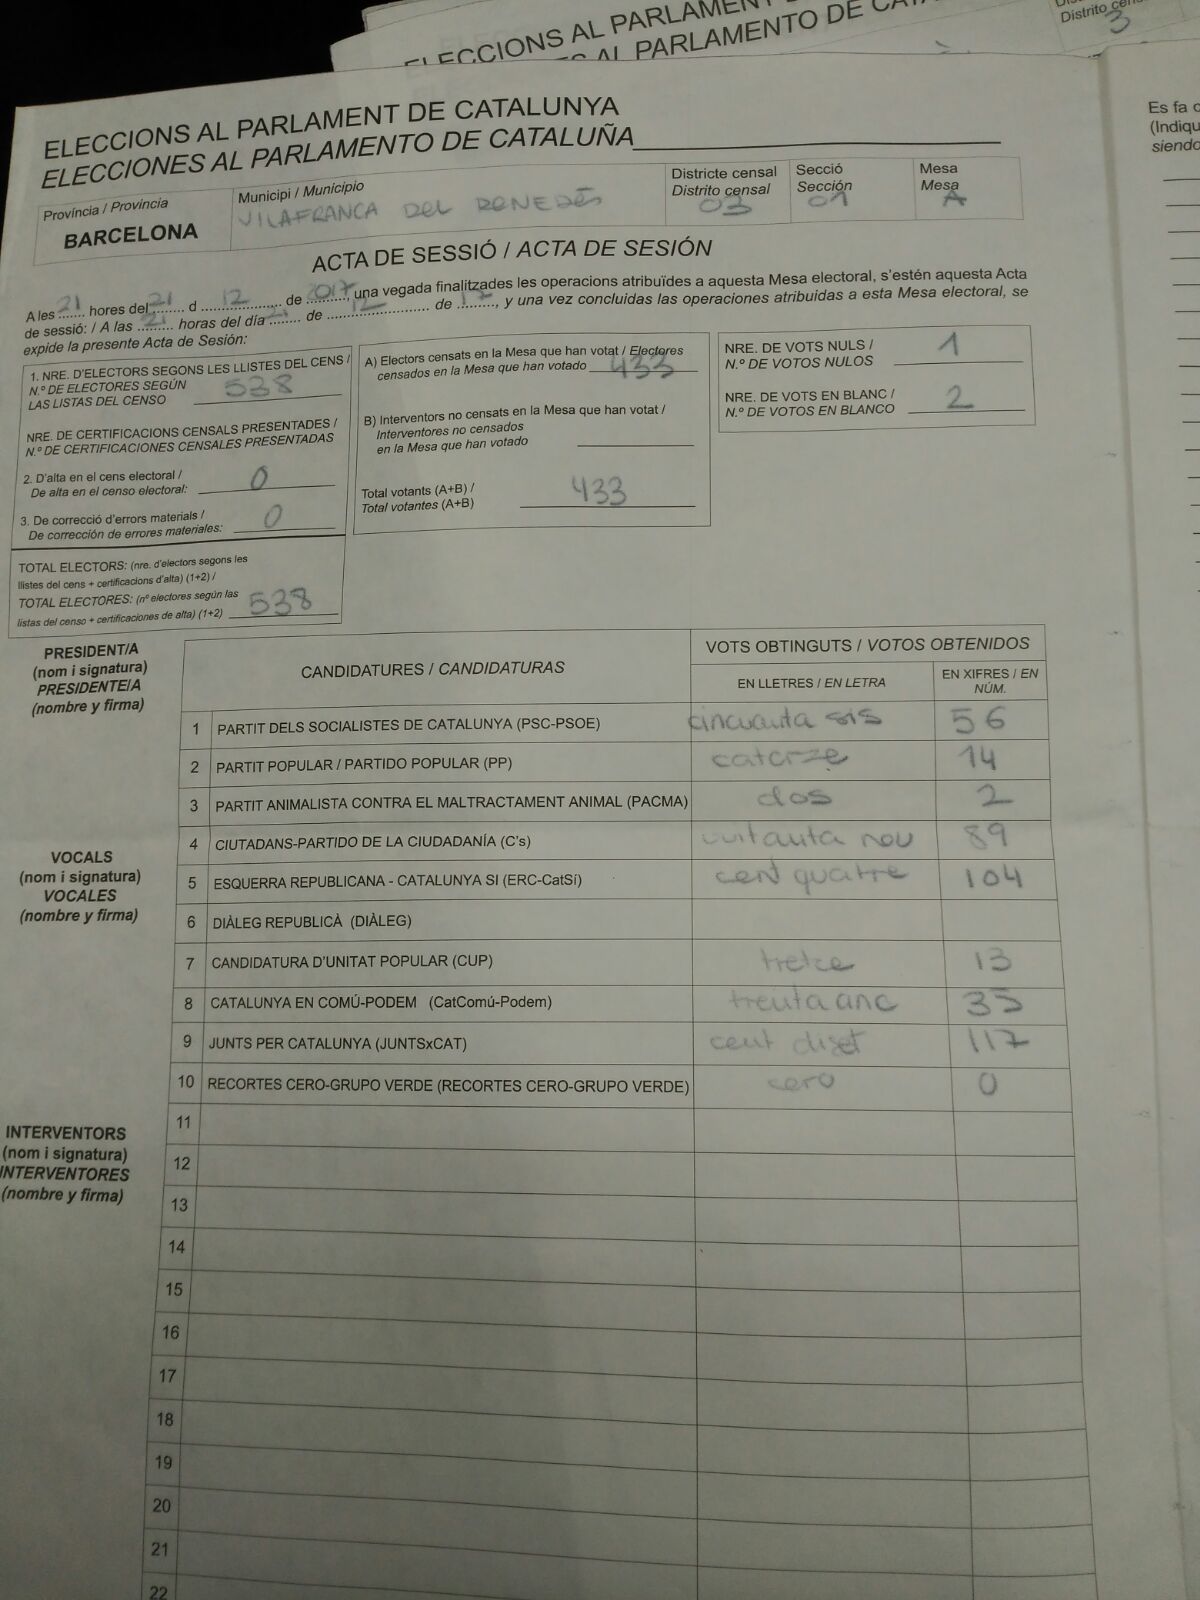 ELECCIONS AL PARLAMENT
AL PARLAMENTO DE
Distrito
3
ELECCIONS AL PARLAMENT DE CATALUNYA
ELECCIONES AL PARLAMENTO DE CATALUÑA
Es fa
(Indiqu
siendo
Província / Provincia
BARCELONA
Municipi / Municipio
VILAFRANCA DEL PENEDÈS
Districte censal
Distrito censal
03
Secció
Sección
01
Mesa
Mesa
A
ACTA DE SESSIÓ / ACTA DE SESIÓN
A les 21 hores del 21 d 12 de 2017, una vegada finalitzades les operacions atribuïdes a aquesta Mesa electoral, s'estén aquesta Acta
de sessió: / A las 21 horas del día 21 de 12 de 17, y una vez concluidas las operaciones atribuidas a esta Mesa electoral, se
expide la presente Acta de Sesión:
1. NRE. D'ELECTORS SEGONS LES LLISTES DEL CENS /
N.º DE ELECTORES SEGÚN
LAS LISTAS DEL CENSO 538
NRE. DE CERTIFICACIONS CENSALS PRESENTADES /
N.º DE CERTIFICACIONES CENSALES PRESENTADAS
2. D'alta en el cens electoral /
De alta en el censo electoral: 0
3. De correcció d'errors materials /
De corrección de errores materiales: 0
TOTAL ELECTORS: (nre. d'electors segons les
llistes del cens + certificacions d'alta) (1+2) /
TOTAL ELECTORES: (nº electores según las
listas del censo + certificaciones de alta) (1+2) 538
A) Electors censats en la Mesa que han votat / Electores
censados en la Mesa que han votado 433
B) Interventors no censats en la Mesa que han votat /
Interventores no censados
en la Mesa que han votado
Total votants (A+B) /
Total votantes (A+B) 433
NRE. DE VOTS NULS /
N.º DE VOTOS NULOS 1
NRE. DE VOTS EN BLANC /
N.º DE VOTOS EN BLANCO 2
PRESIDENT/A
(nom i signatura)
PRESIDENTE/A
(nombre y firma)
VOCALS
(nom i signatura)
VOCALES
(nombre y firma)
INTERVENTORS
(nom i signatura)
INTERVENTORES
(nombre y firma)
CANDIDATURES / CANDIDATURAS
VOTS OBTINGUTS / VOTOS OBTENIDOS
EN LLETRES / EN LETRA
EN XIFRES / EN
NÚM.
1 PARTIT DELS SOCIALISTES DE CATALUNYA (PSC-PSOE) cincuanta sis 56
2 PARTIT POPULAR / PARTIDO POPULAR (PP) catorze 14
3 PARTIT ANIMALISTA CONTRA EL MALTRACTAMENT ANIMAL (PACMA) dos 2
4 CIUTADANS-PARTIDO DE LA CIUDADANÍA (C's) vuitanta nou 89
5 ESQUERRA REPUBLICANA - CATALUNYA SI (ERC-CatSí) cent quatre 104
6 DIÀLEG REPUBLICÀ (DIÀLEG)
7 CANDIDATURA D'UNITAT POPULAR (CUP) tretze 13
8 CATALUNYA EN COMÚ-PODEM (CatComú-Podem) trenta cinc 35
9 JUNTS PER CATALUNYA (JUNTSxCAT) cent diset 117
10 RECORTES CERO-GRUPO VERDE (RECORTES CERO-GRUPO VERDE) cero 0
11
12
13
14
15
16
17
18
19
20
21
22